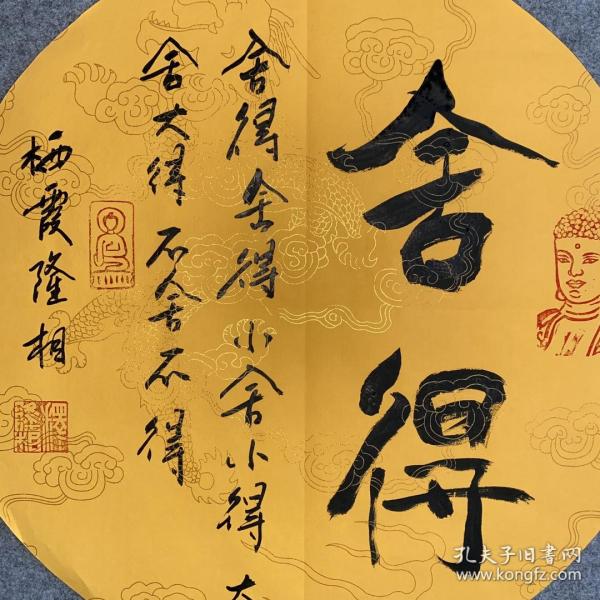 舍得
舍得舍得小舍小得大
舍大得不舍不得
栖霞隆相
孔夫子旧书网
www.kongfz.com